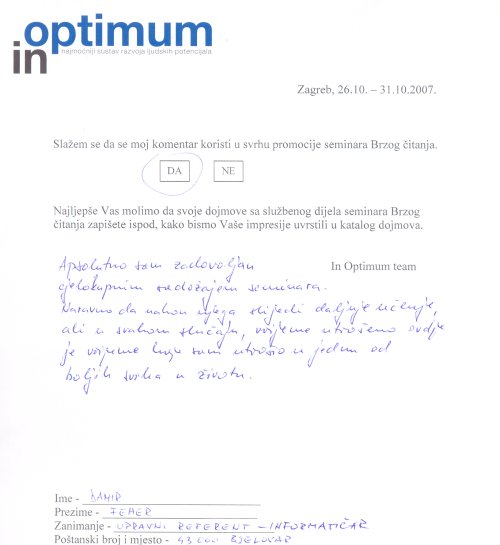 in optimum
najmoćniji sustav razvoja ljudskih potencijala
Zagreb, 26.10. – 31.10.2007.
Slažem se da se moj komentar koristi u svrhu promocije seminara Brzog čitanja.
DA NE
Najljepše Vas molimo da svoje dojmove sa službenog dijela seminara Brzog
čitanja zapišete ispod, kako bismo Vaše impresije uvrstili u katalog dojmova.
In Optimum team
Apsolutno sam zadovoljan
cjelokupnim sadržajem seminara.
Naravno da nakon njega slijedi daljnje učenje,
ali u svakom slučaju, vrijeme utrošeno ovdje
je vrijeme koje sam utrošio u jednu od
boljih svrha u životu.
Ime - DAMIR
Prezime - FEHER
Zanimanje - UPRAVNI REFERENT - INFORMATIČAR
Poštanski broj i mjesto - 43000 BJELOVAR